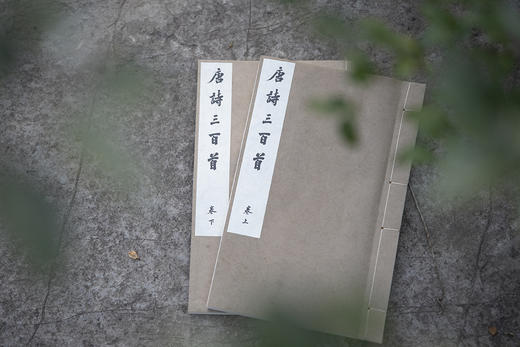 唐詩三百首
卷下
唐詩三百首
卷上